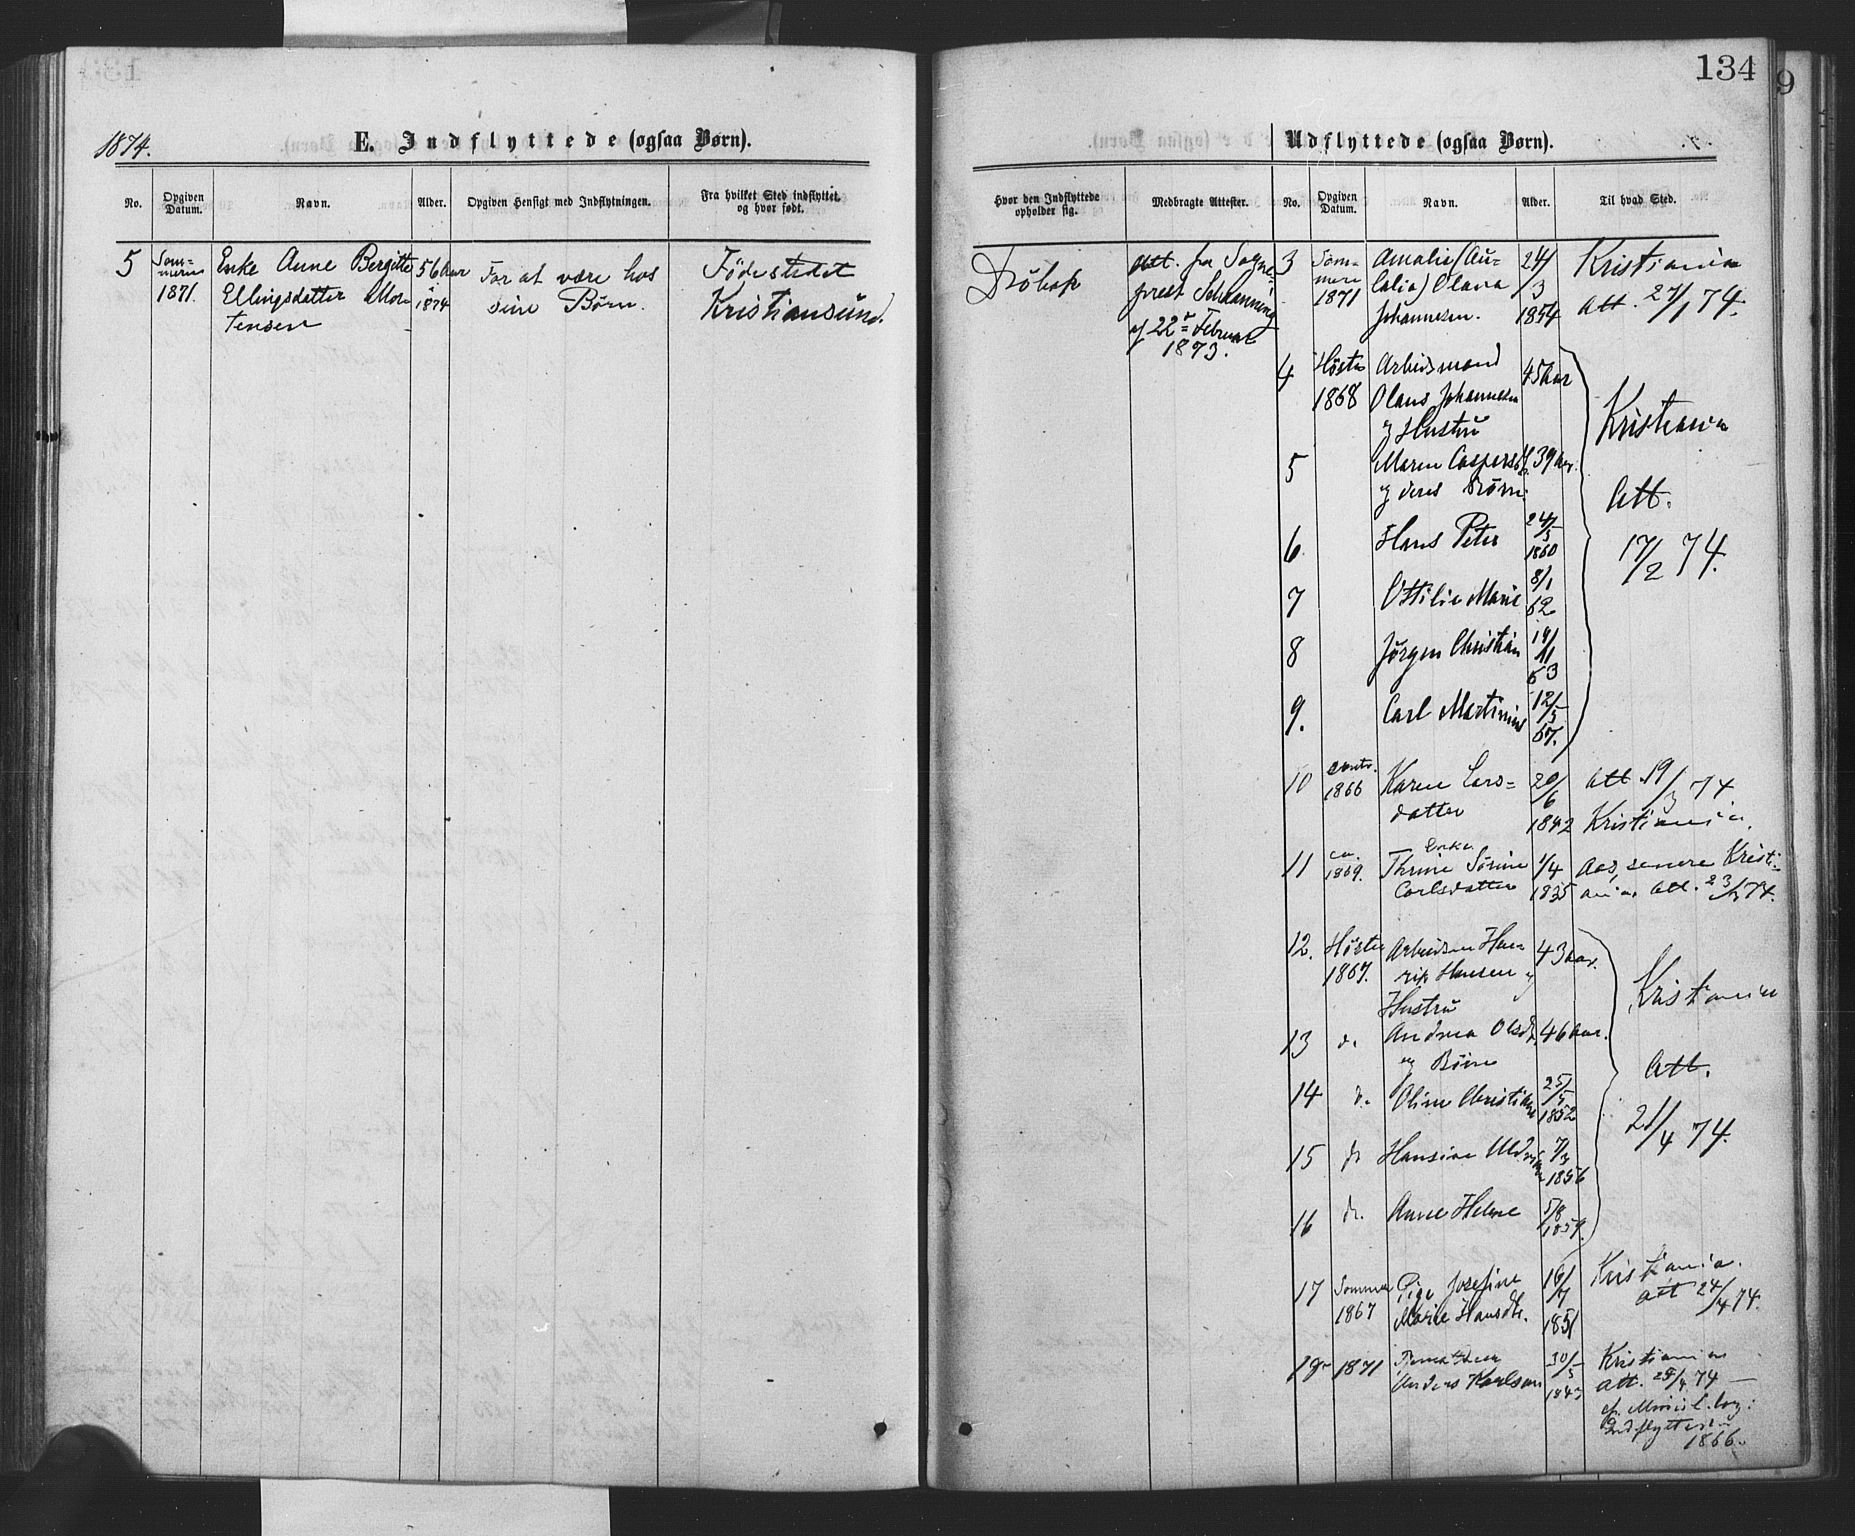 134
9
1874.
E. Indflyttede (ogsaa Børn).
No.
Opgiven Datum.
Navn.
Alder.
Opgiven Hensigt med Indflytningen.
Fra hvilket Sted indflyttet. og hvor født.
5
Som-
meren
1871.
Enke Anne Bergitte
Ellingsdatter Mor-
tensen
56 Aar
1874
For at være hos
sine Børn.
Fødestedet
Kristiansund.
Udflyttede (ogsaa Børn).
Hvor den Indflyttede opholder sig.
Medbragte Attester.
No.
Opgiven Datum.
Navn.
Alder.
Til hvad Sted.
Drøbak
att. fra Sogne-
prest Schanning
af 22de Februar
1873.
3
Som-
meren
1871
Amalie (Au-
Olava
Johannesen.
24/
3
1854
Kristiania
Att. 27/1 74.
4
Høsten
1868
Arbeidsmand
Olaus Johannesen
og Hustru
45 Aar
Kristiania
Att.
17/2 74.
5
Maren Caspersd.
og deres Børn:
39 Aar.
6
Hans Peter
24/
3
1860
7
Ottilie Marie
8/1
62
8
Jørgen Christian
19/
11
63
9.
Carl Martinius
12/
5
67.
10
1866
Karen Lars-
datter
20/
6
1842
Att 19/3 74
Kristiania.
11
ca.
1869.
Enke
Thrine Sørine
Carlsdatter
1/4
1835
Aas, senere Kristi-
ania. Att. 23/3 74.
12.
Høsten
1867.
Arbeidsm Hen-
rik Hansen og
Hustru
43 Aar.
Kristiania
Att.
21/4 74.
13
d.
Andrea Olsd.
og Børn
46 Aar.
14
d.
Oline Christiane
25/
5
1852
15
do
Hansine
7/3
1856
16
do.
Anne Helene
5/8
1859.
17
Sommer
1867
Pige Josefine
Marie Hansdtr.
16/
7
1851
Kristiania.
att 24/4 74.
18
1871
Anders Karlsen
30/
5
1843
Kristiania
Att. 28/4 74 —
cf. Minist.bog:
Indflyttede
1866.